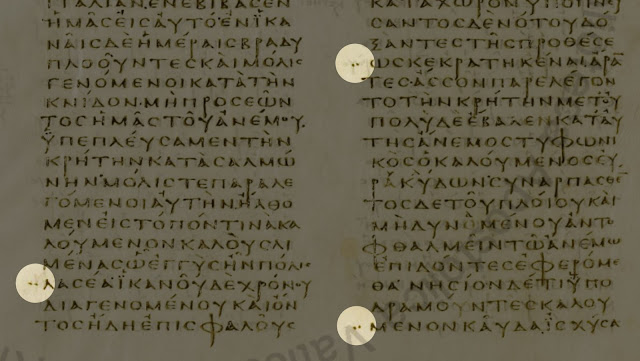 ΙΤΑΛΙΑΝΕΝΕΒΙΒΑϹΕΝ
ΗΜΑϹΕΙϹΑΥΤΟΕΝΙΚΑ
ΝΑΙϹΔΕΗΜΕΡΑΙϹΒΡΑΔΥ
ΠΛΟΟΥΝΤΕϹΚΑΙΜΟΛΙϹ
ΓΕΝΟΜΕΝΟΙΚΑΤΑΤΗΝ
ΚΝΙΔΟΝ·ΜΗΠΡΟϹΕΩΝ
ΤΟϹΗΜΑϹΤΟΥΑΝΕΜΟΥ
ΫΠΕΠΛΕΥϹΑΜΕΝΤΗΝ
ΚΡΗΤΗΝΚΑΤΑϹΑΛΜΩ
ΝΗΝΜΟΛΙϹΤΕΠΑΡΑΛΕ
ΓΟΜΕΝΟΙΑΥΤΗΝΗΛΘΟ
ΜΕΝΕΙϹΤΟΠΟΝΤΙΝΑΚΑ
ΛΟΥΜΕΝΟΝΚΑΛΟΥϹΛΙ
ΜΕΝΑϹΩΕΓΓΥϹΗΝΠΟΛΙϹ
ΛΑϹΕΑΪΚΑΝΟΥΔΕΧΡΟΝΟΥ
ΔΙΑΓΕΝΟΜΕΝΟΥΚΑΙΟΝ
ΤΟϹΗΔΗΕΠΙϹΦΑΛΟΥϹ
ϹΑΝΤΟϹΔΕΝΟΤΟΥΔΟ
ΞΑΝΤΕϹΤΗϹΠΡΟΘΕϹΕ
ΩϹΚΕΚΡΑΤΗΚΕΝΑΙΑΡΑ
ΤΕϹΑϹϹΟΝΠΑΡΕΛΕΓΟΝ
ΤΟΤΗΝΚΡΗΤΗΝΜΕΤΟΥ
ΠΟΛΥΔΕΕΒΑΛΕΝΚΑΤΑΥ
ΤΗϹΑΝΕΜΟϹΤΥΦΩΝΙ
ΚΟϹΟΚΑΛΟΥΜΕΝΟϹΕΥ
ΡΑΚΥΛΩΝϹΥΝΑΡΠΑϹΘΕ
ΤΟϹΔΕΤΟΥΠΛΟΙΟΥΚΑΙ
ΜΗΔΥΝΟΜΕΝΟΥΑΝΤΟ
ΦΘΑΛΜΕΙΝΤΩΑΝΕΜΩ
ΕΠΙΔΟΝΤΕϹΕΦΕΡΟΜΕ
ΘΑΝΗϹΙΟΝΔΕΤΙΫΠΟ
ΔΡΑΜΟΥΝΤΕϹΚΑΛΟΥ
ΜΕΝΟΝΚΑΥΔΑΙϹΧΥϹΑ